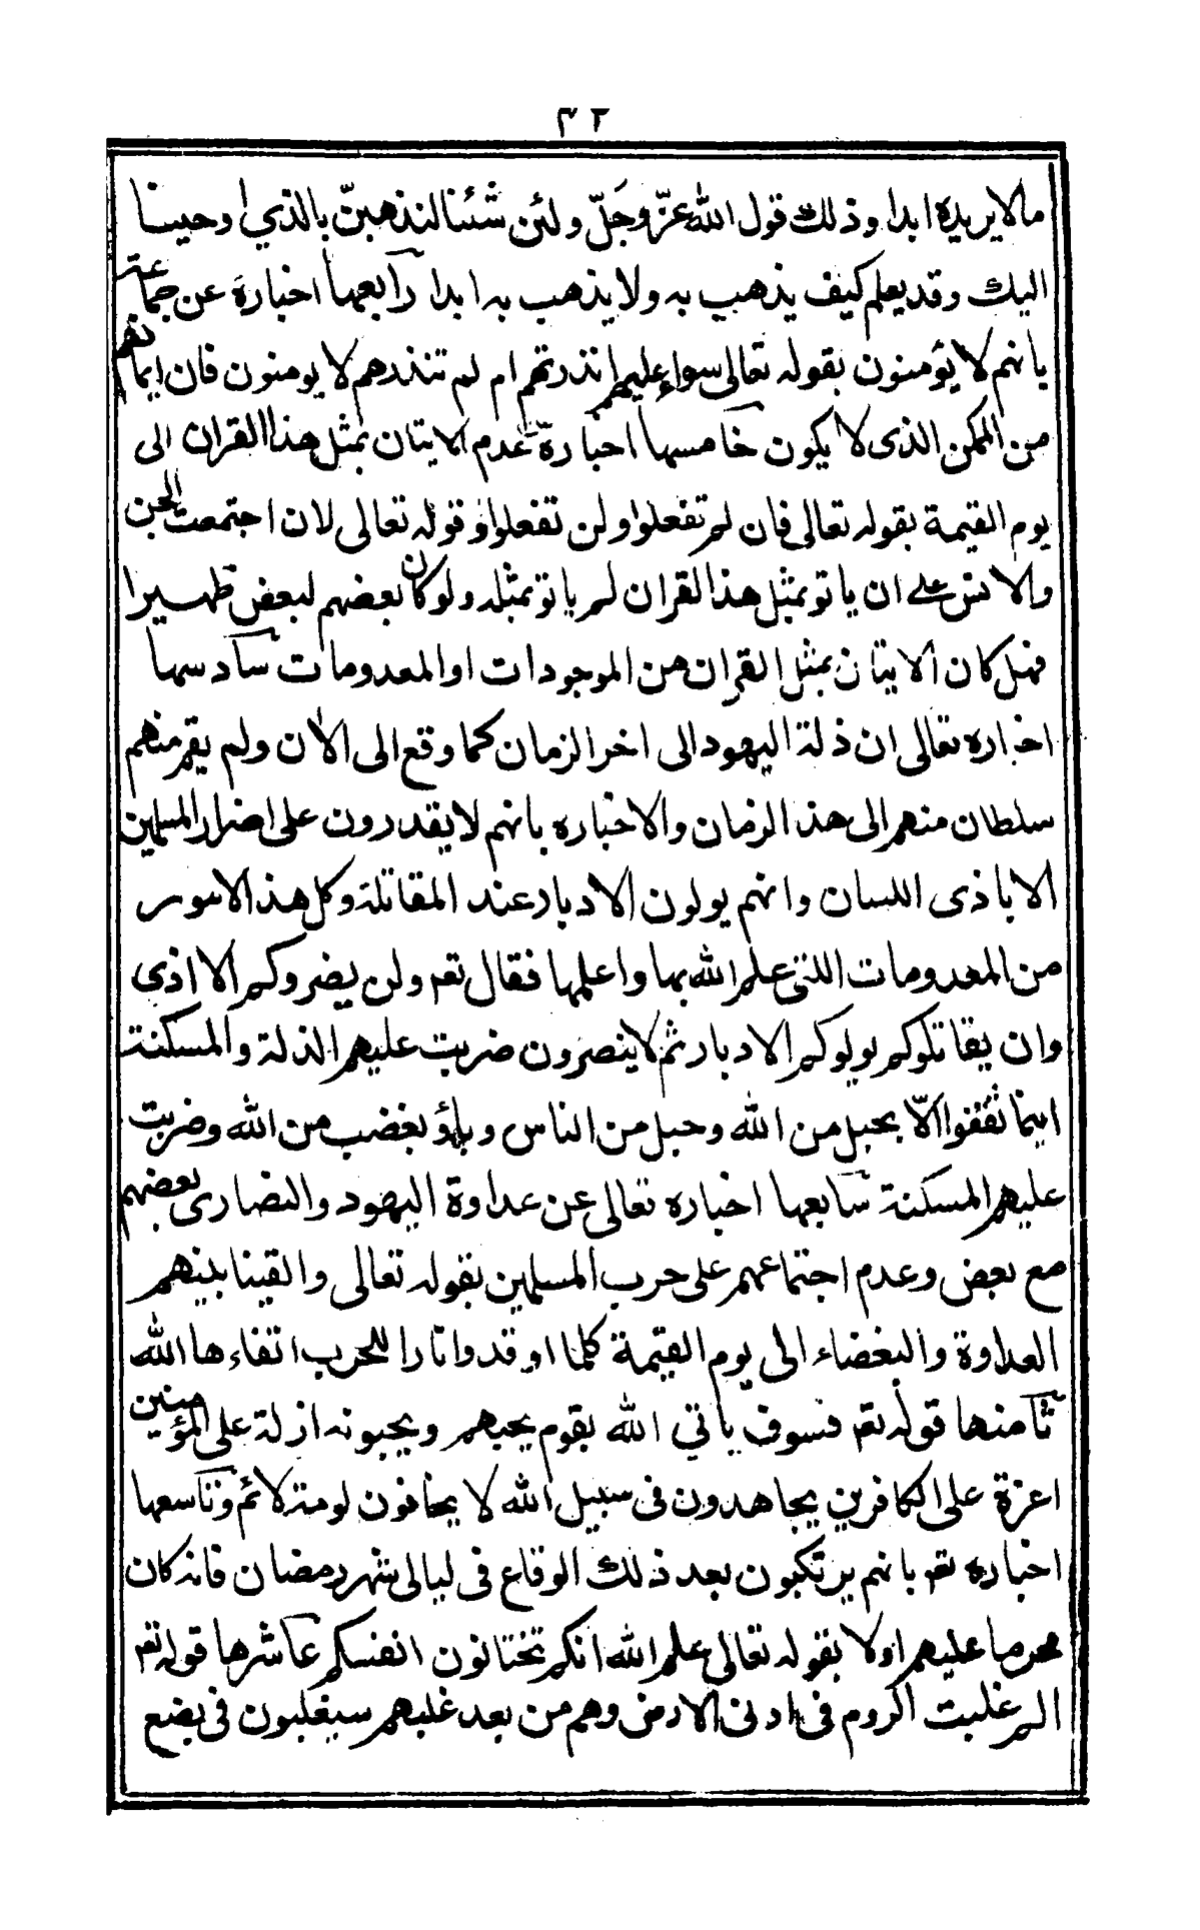 ٣٢
مالا يريده ابدا وذلك قول الله عزّ وجَلّ ولئن شئنا لنذهبنّ بالذي اوحينا
اليك وقد يعلم كيف يذهب به ولا يذهب به ابدا رابعها اخباره عن جماعته
بانهم لا يؤمنون بقوله تعالى سواء عليهم انذرتهم ام لم تنذرهم لا يومنون فان ايمانهم
من الممكن الذى لا يكون خامسها اخباره عدم الايتان بمثل هذا القران الى
يوم القيمة بقوله تعالى فان لم تفعلوا ولن تفعلوا وقوله تعالى لان اجتمعت الجن
والانس على ان ياتو بمثل هذا القران لم ياتو بمثله ولو كان بعضهم لبعض ظهيرا
فهل كان الايتان بمثل القران من الموجودات او المعدومات سادسها
اخباره تعالى ان ذلة اليهود الى اخر الزمان كما وقع الى الان ولم يقم منهم
سلطان منهم الى هذا الزمان والاخباره بانهم لا يقدرون على اضرار المسلمين
الا باذى اللسان وانهم يولون الادبار عند المقاتلة وكل هذا الامور
من المعدومات اللتى علم الله بها واعلمها فقال تعم ولن يضروكم الا اذى
وان يقاتلوكم يولوكم الادبار ثم لا ينصرون ضربت عليهم الذلة والمسكنة
اينما ثقفوا الّا بحبل من الله وحبل من الناس وباؤ بغضب من الله وضربت
عليهم المسكنة سابعها اخباره تعالى عن عداوة اليهود والنصارى بعضهم
مع بعض وعدم اجتماعهم على حرب المسلمين بقوله تعالى والقينا بينهم
العداوة والبغضاء الى يوم القيمة كلما اوقدوا نارا للحرب اتفاءها الله
ثامنها قوله تعم فسوف ياتي الله بقوم يحبهم ويحبونه ازلة على المؤمنين
اعزة على الكافرين يجاهدون فى سبيل الله لا يخافون لومة لائم وتاسعها
اخباره تعم بانهم يرتكبون بعد ذلك الوقاع فى ليالى شهر رمضان فانه كان
محرما عليهم اولا بقوله تعالى علم الله انكم تختانون انفسكم عاشرها قوله تعم
الم غلبت الروم فى ادنى الارض وهم من بعد غلبهم سيغلبون فى بضع